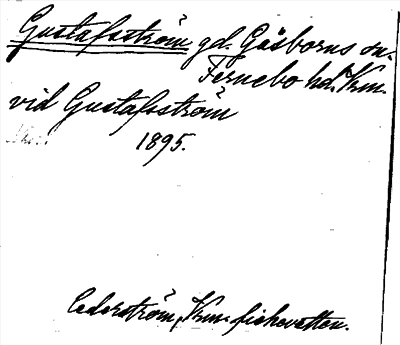 Gustafsström gd. Gåsborns sn.
Fernebo hd. Vrm.
vid Gustafsström
1895.
Cederström, Vrm. fiskevatten.